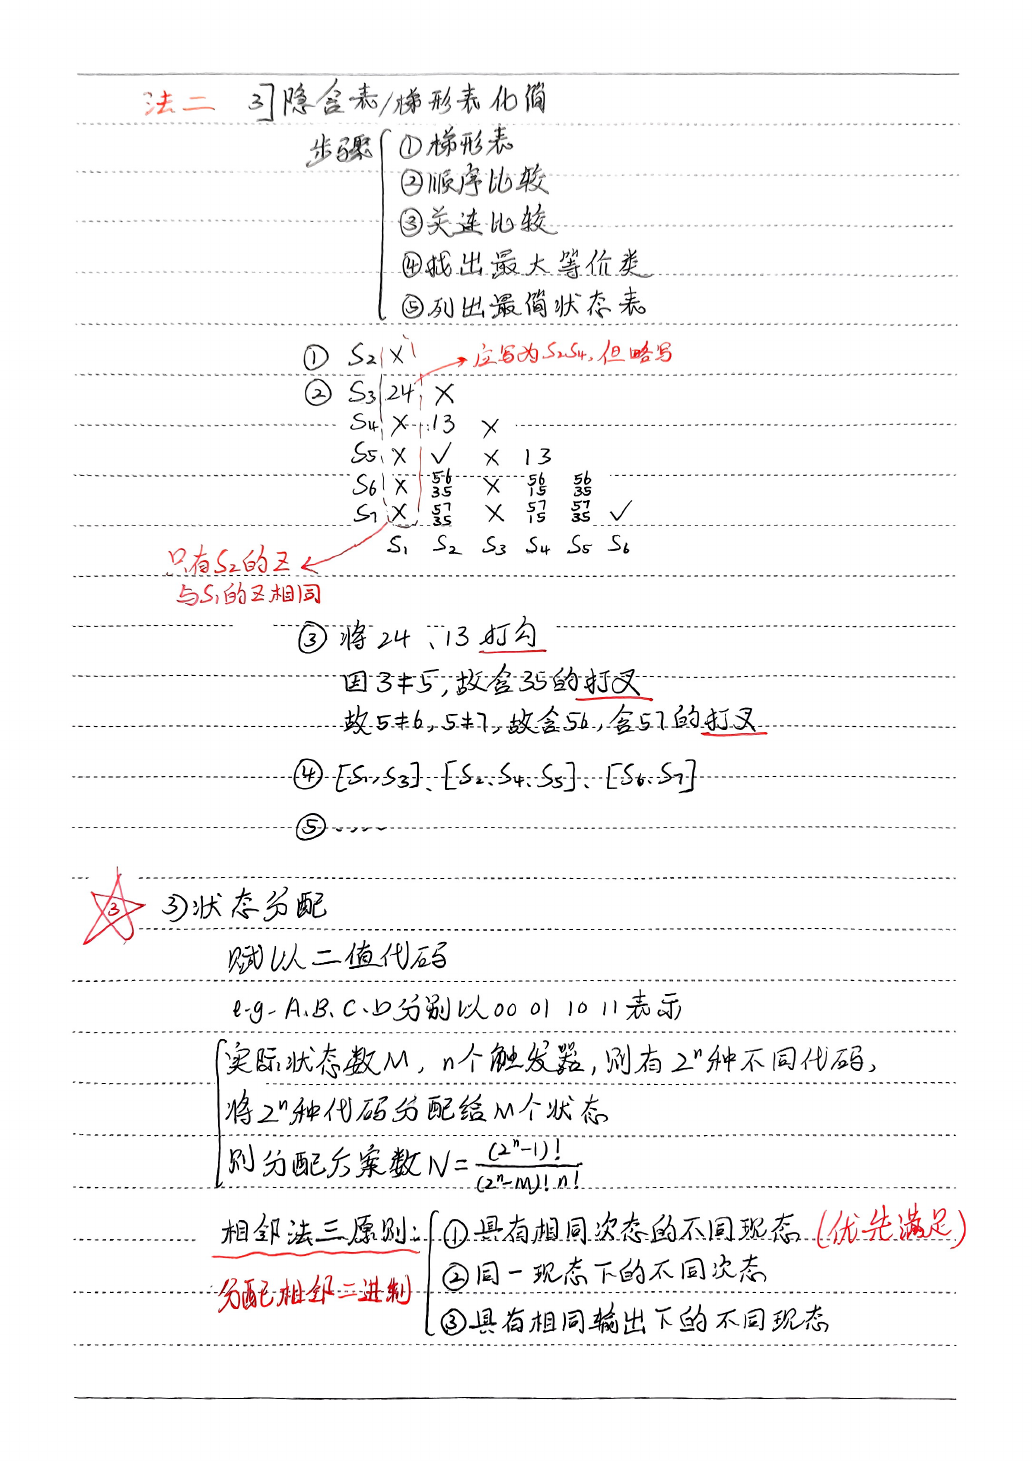 法二 3]隐含表/梯形表化简
步骤 ①梯形表
②顺序比较
③关连比较
④找出最大等价类
⑤列出最简状态表
① S2 X 应写为S2S4,但略写
② S3 24 X
S4 X 13 X
S5 X ✓ X 13
S6 X 56 35 X 56 15 56 35
S7 X 57 35 X 57 15 57 35 ✓
S1 S2 S3 S4 S5 S6
只有S2的Z
与S1的Z相同
③ 将24、13打勾
因3≠5,故含35的打叉
故5≠6,5≠7,故含56,含57的打叉
④ [S1,S3]、[S2、S4、S5]、[S6、S7]
⑤ ....
3 3)状态分配
赋以二值代码
e.g. A、B、C、D分别以00 01 10 11表示
实际状态数M, n个触发器,则有2ⁿ种不同代码,
将2ⁿ种代码分配给M个状态
则分配方案数N=(2ⁿ-1)!/(2ⁿ-M)!n!
相邻法三原则: ①具有相同次态的不同现态 (优先满足)
②同一现态下的不同次态
分配相邻二进制
③具有相同输出下的不同现态